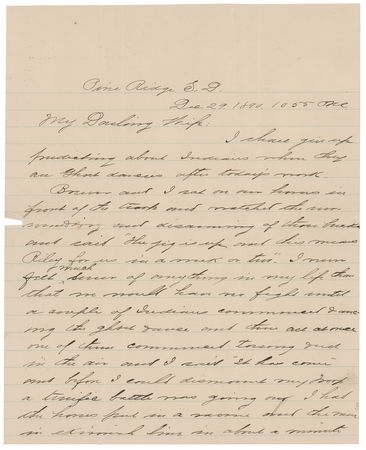 Pine Ridge S. D.
Dec 29. 1890. 10 55 PM
My Darling Wife:
I shall give up
predicting about Indians when they
are Ghost dances after today's work.
and I sat on our horses in
front of the and watched the surrounding
and disarming of those bucks
and said "the jig is up and this means
Riley for us in a week or two". I never
felt much surer of anything in my life than
that we would have no fight until
a couple of Indians commenced dancing
the ghost dance and then all at once
one of them commenced tossing dust
in the air and I said "It has come"
and before I could dismount my troop
a terrific battle was going on. I had
the horses put in a ravine and the men
in skirmish line in about a minute